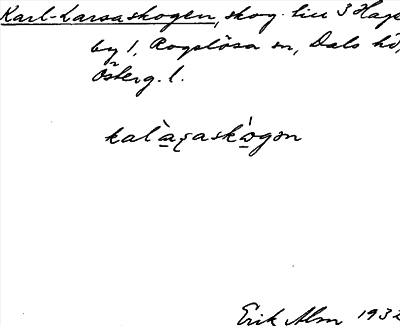 Karl-Larsaskogen, skog till 3 Hage
by 1, Rogslösa sn, Dals hd,
Österg. l.
kalàʂaskógən
Erik Alm 1932